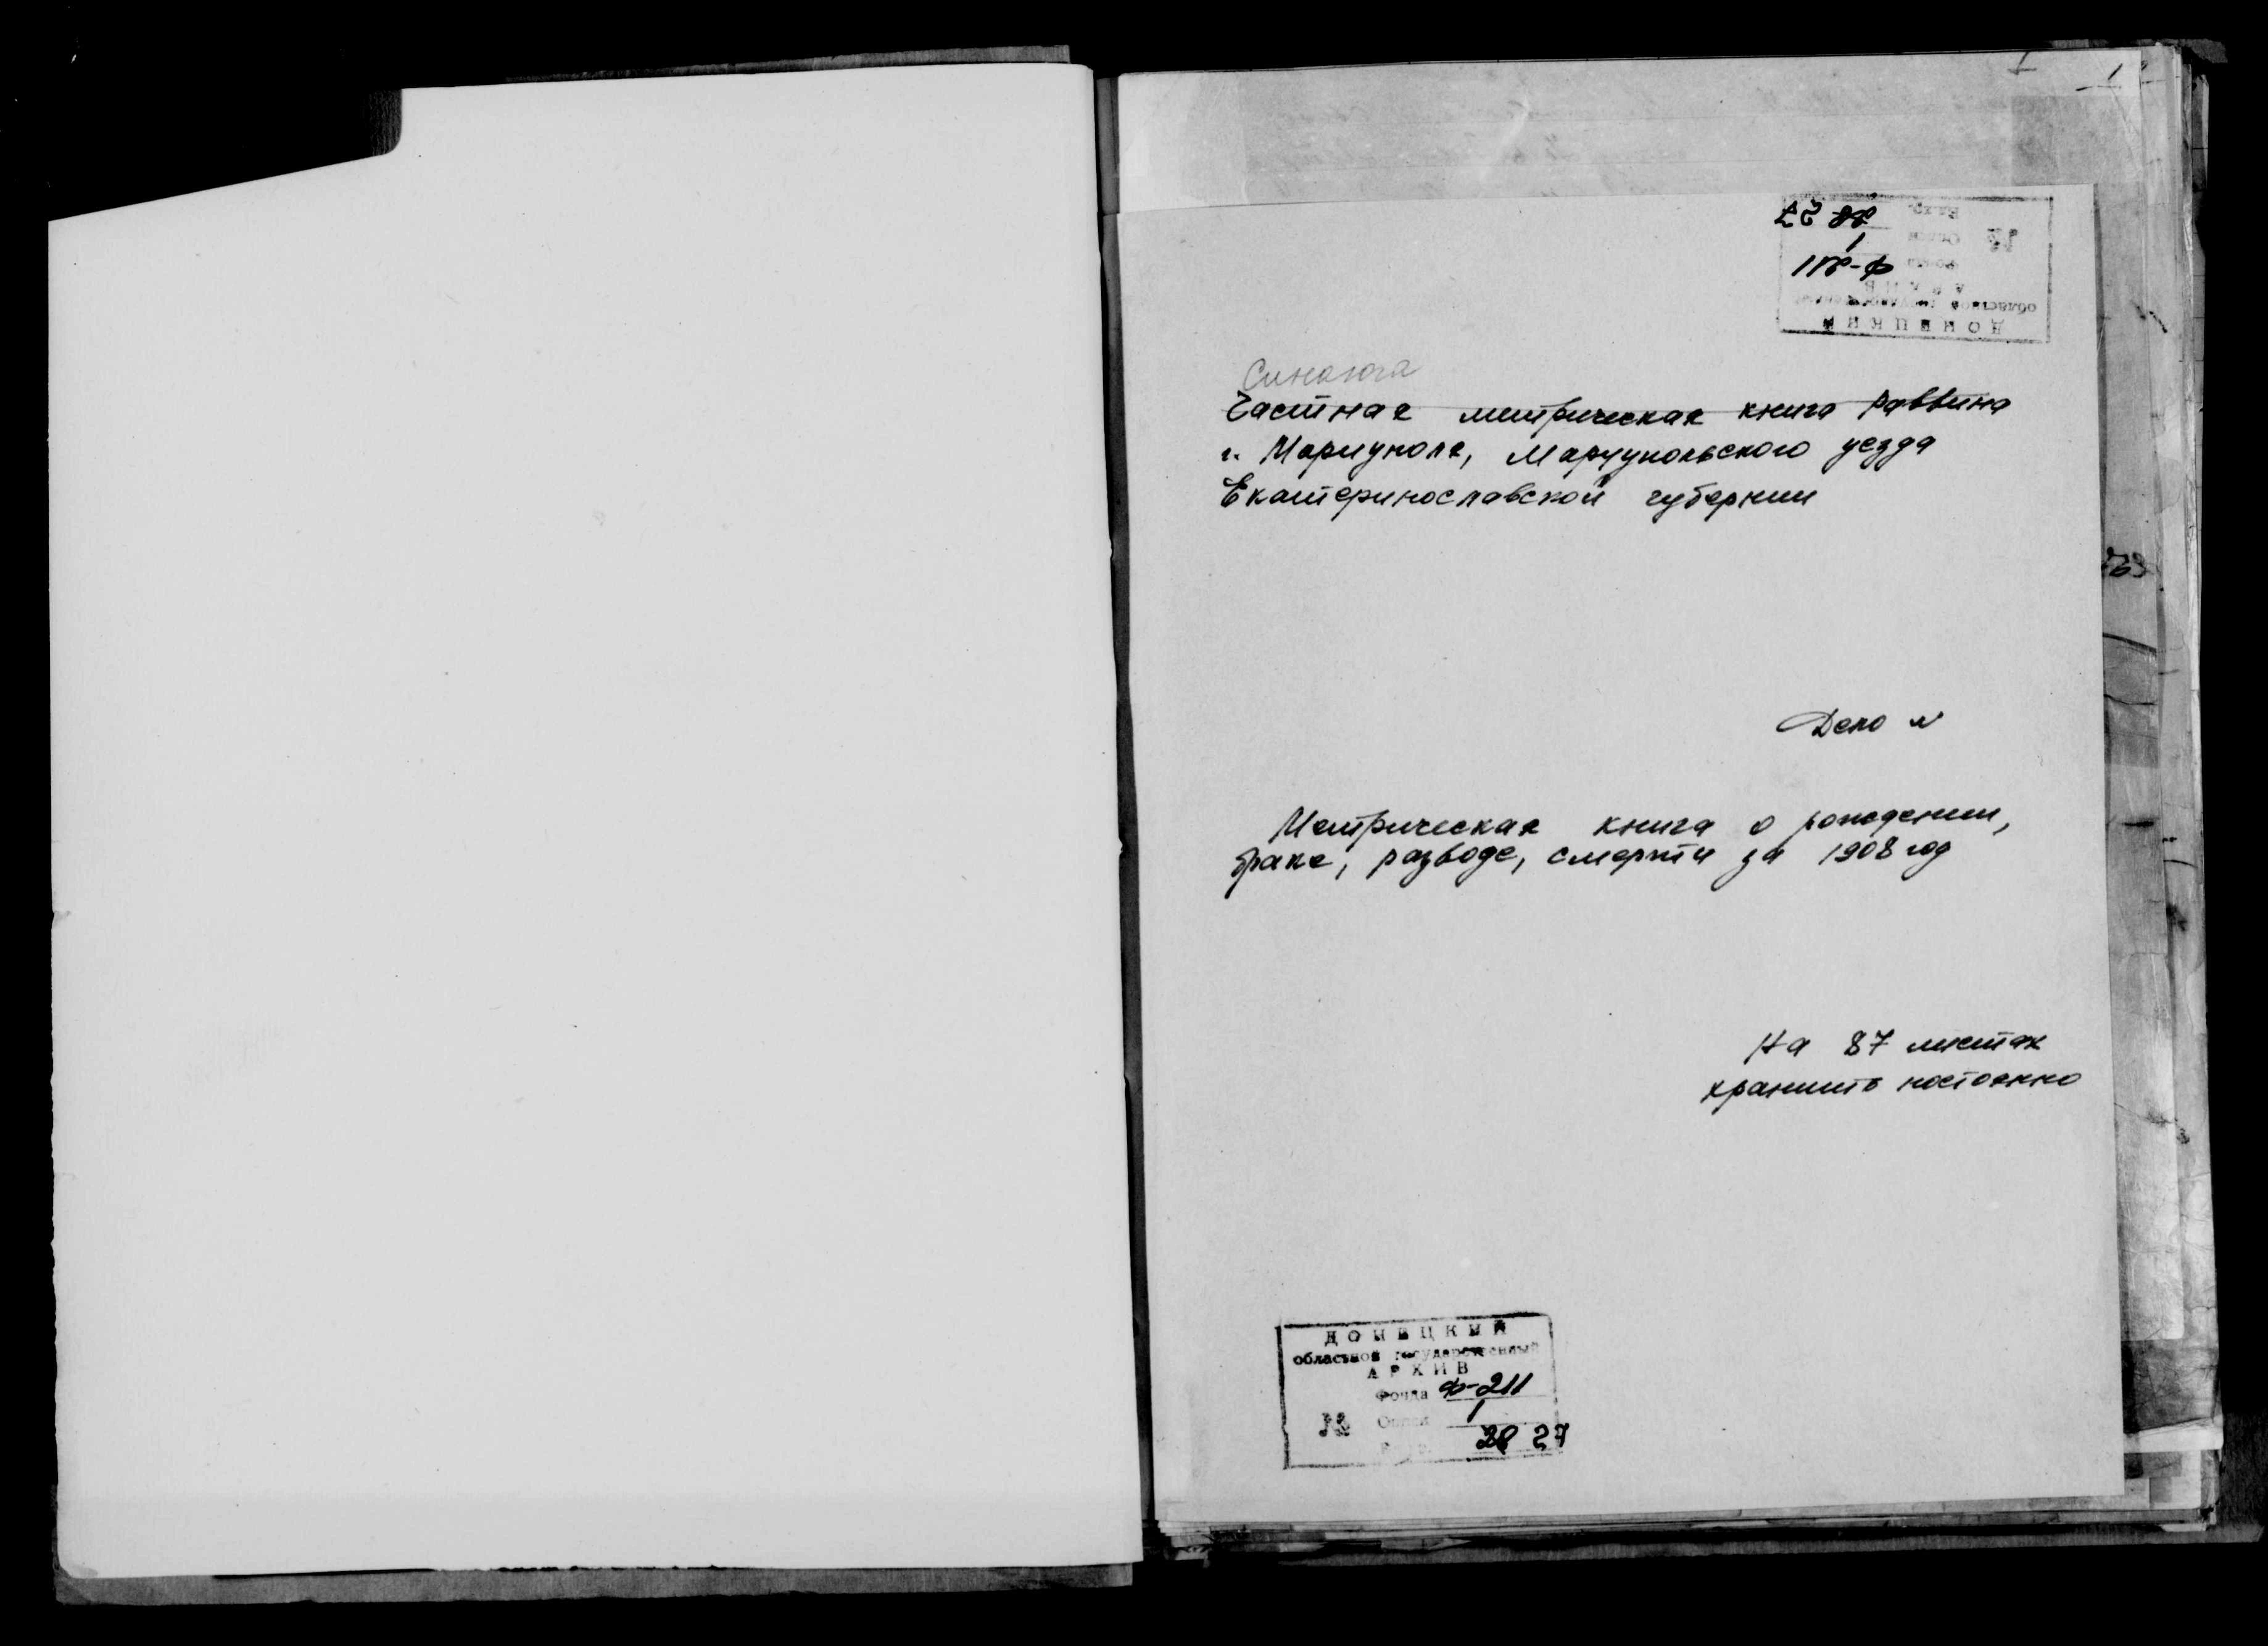 1
Синагога
Частная метрическая книга раввина
г. Мариуполя, Мариупольского уезда
Екатеринославской губернии
Дело N
Метрическая книга о рождении,
браке, разводе, смерти за 1908 год
На 87 листах
хранить постоянно
ДОНЕЦКИЙ
областной государственный
АРХИВ
Фонда Ф-211
Описи 1
№ 28 27
ДОНЕЦКИЙ
областной государственный
АРХИВ
Фонда Ф-211
Опись 1
Ед. хр. 28 27